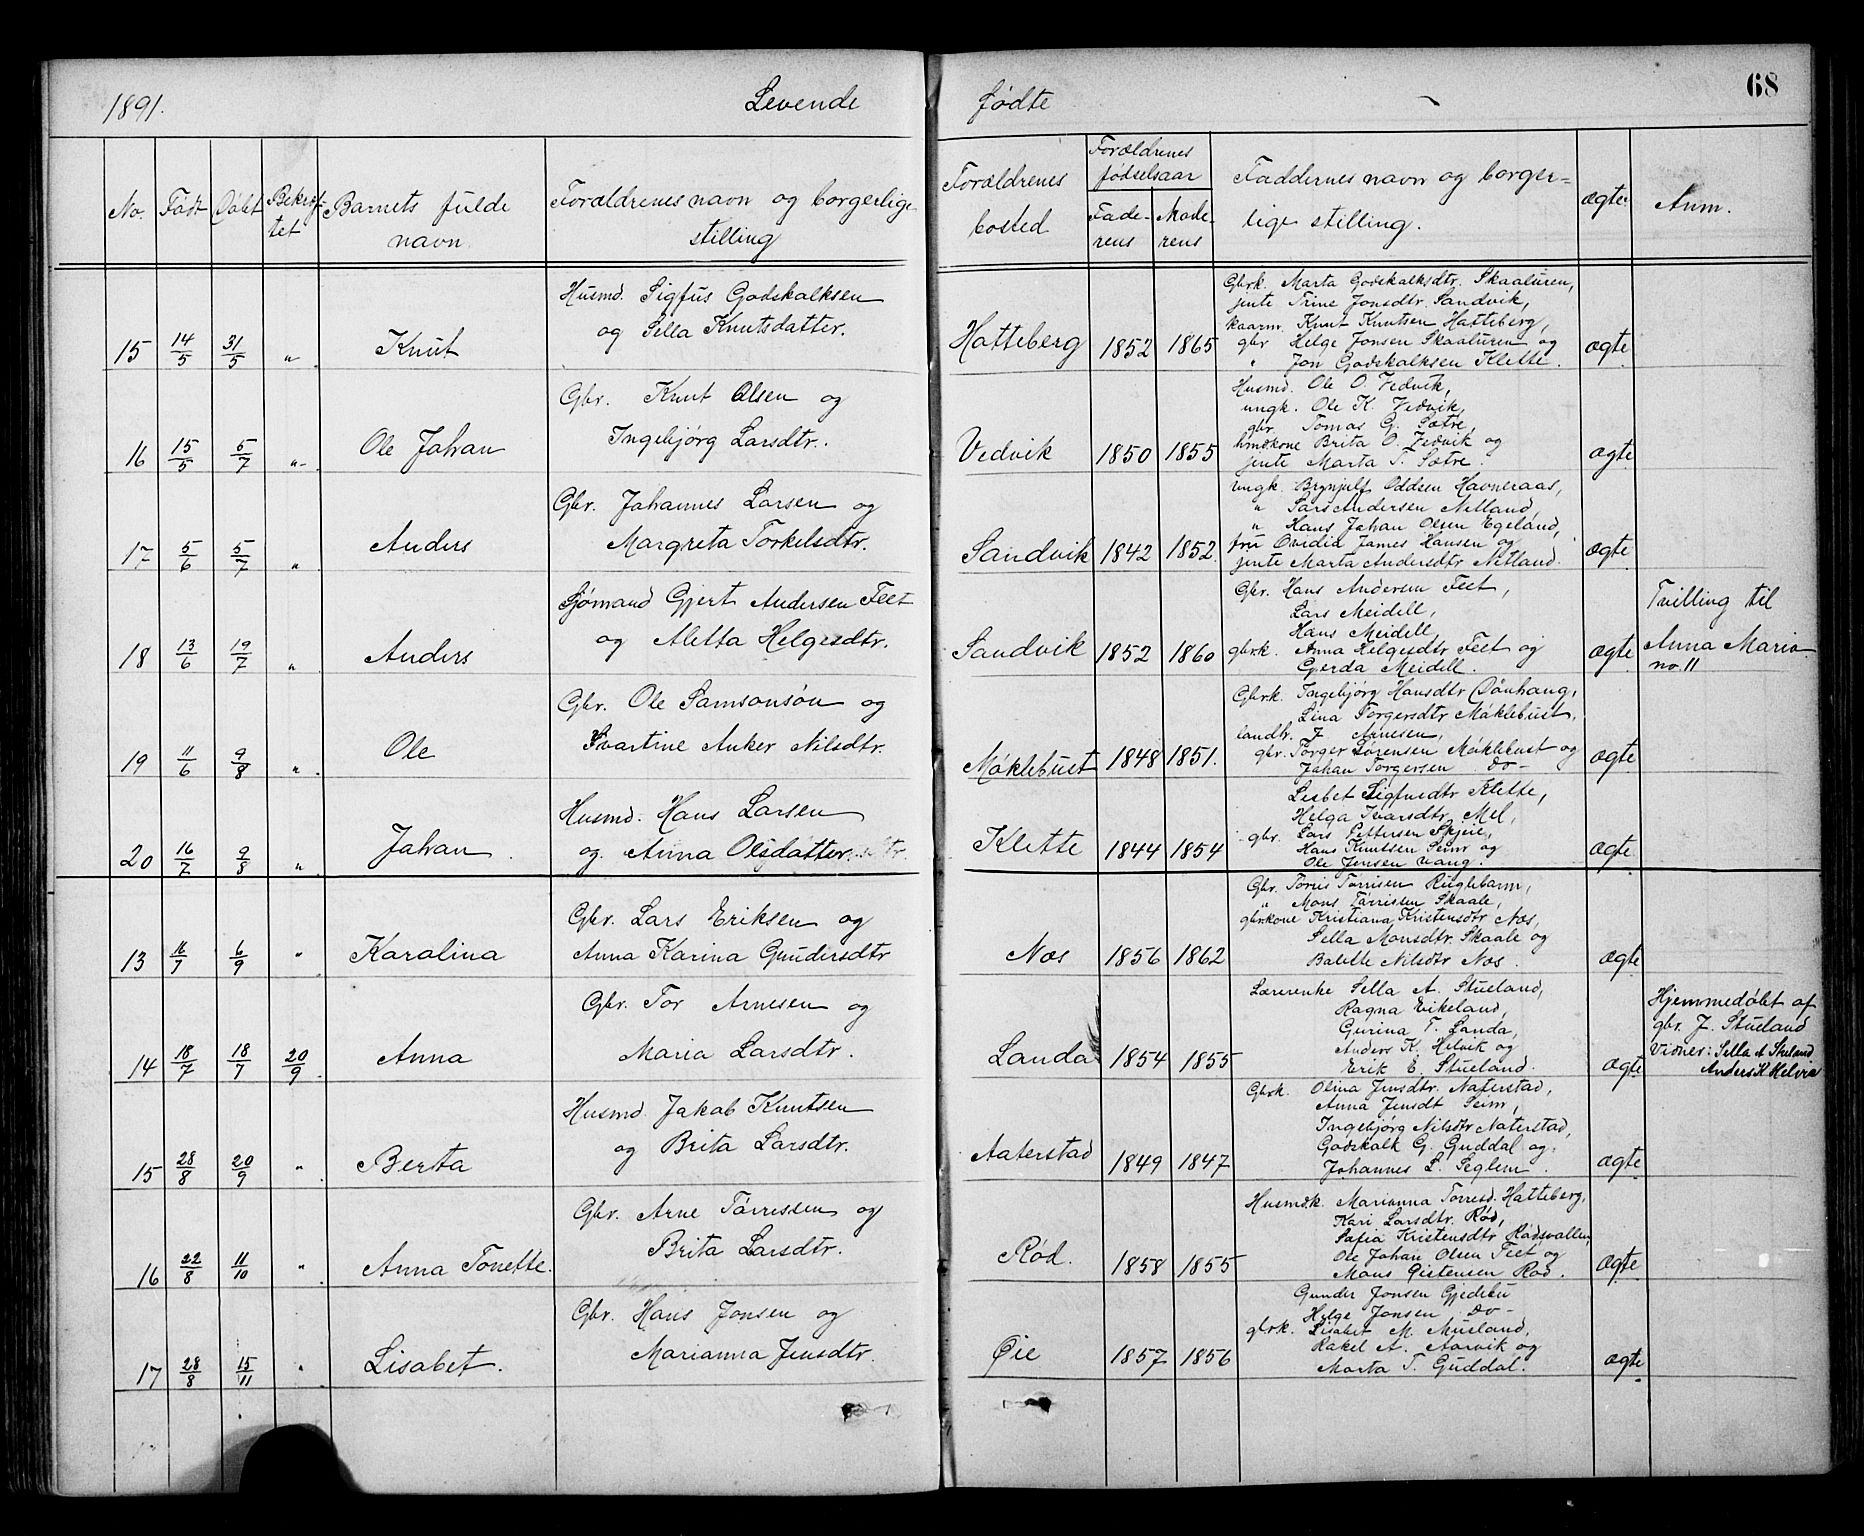 1891. Levende fødte 68
No. Født Døbt Bekræftet Barnets fulde navn. Forældrenes navn og borgerlige stilling Forældrenes bosted Forældrenes fødselsaar Faderens Moderens Faddernes navn og borgerlige stilling. ægte Anm.
15 14/5 31/5 " Knut
Husmd. Sigfus Godskalksen
og Sella Knutsdatter.
Hatteberg 1852 1865
Gbrk. Marta Godskalksdtr. Skaaluren,
jente Trine Jonsdtr. Sandvik,
kaarm. Knut Knutsen Hatteberg,
gbr Helge Jonsen Skaaluren og
" Jon Godskalksen Klette.
ægte
16 15/5 5/7 " Ole Johan
Gbr. Knut Olsen og
Ingebjørg Larsdtr.
Vedvik 1850 1855
Husmd. Ole O. Vedvik,
ungk. Ole K. Vedvik,
gbr. Tomas G. Sætre,
hmskone Brita O. Vedvik og
jente Marta T. Sætre.
ægte
17 5/6 5/7 " Anders
Gbr. Johannes Larsen og
Margreta Torkelsdtr.
Sandvik 1842 1852
ungk. Brynjulf Oddsen Havneraas,
" Lars Andersen Netland,
" Hans Johan Olsen Egeland,
fru Ovidia James Hansen og
jente Marta Andersdtr Netland.
ægte
18 13/6 19/7 " Anders
Sjømand Gjert Andersen Feet
og Aletta Helgesdtr.
Sandvik 1852 1860
Gbr. Hans Andersen Feet,
Lars Meidell,
Hans Meidell,
gbrk. Anna Helgesdtr Feet og
Gjerda Meidell.
ægte
Tvilling til
Anna Maria
no. 11
19 11/6 9/8 " Ole
Gbr. Ole Samsonsøn og
Svartine Anker Nilsdtr.
Møklebust 1848 1851.
Gbrk. Ingebjørg Hansdtr Dønhaug,
Lina Torgersdtr Møklebust,
landtr. J. Arnesen,
gbr. Torger Sørensen Møklebust og
Johan Torgersen do-
ægte
20 16/7 9/8 " Johan
Husmd. Hans Larsen
og Anna Olsdatter
Klette 1844 1854
Lisbet Sigfusdtr Klette,
Helga Ivarsdtr Mel,
gbr. Lars Pettersen Skjeie,
Hans Knutsen Seim og
Ole Jensen Vang.
ægte
13 16/7 6/9 " Karolina
Gbr. Lars Eriksen og
Anna Karina Gundersdtr
Næs 1856 1862
Gbr. Torris Torrisen Ruglebarm,
" Mons Tørrisen Skaale,
gbrkone Kristiana Kristensdtr Næs,
Sella Monsdtr. Skaale og
Balette Nilsdtr Næs.
ægte
14 18/7 18/7 20/9 Anna
Gbr. Tor Arnesen og
Maria Larsdtr.
Landa 1854 1855
Lærerenke Sella A. Stueland,
Ragna Eikeland,
Gurina T. Landa,
Anders K. Helvik og
Erik E. Stueland.
ægte
Hjemmedøbt af
gbr. J. Stueland
Vidner: Sella A Stueland
Anders K Helvik
15 28/8 20/9 " Berta
Husmd. Jakob Knutsen
og Brita Larsdtr.
Naterstad 1849 1847
Gbrk. Olina Jensdtr. Naterstad,
Anna Jensdt Seim,
Ingebjørg Nilsdtr Naterstad,
Godskalk G. Guddal og
Johannes L. Seglem.
ægte
16 22/8 11/10 " Anna Tonette.
Gbr. Arne Tørressen og
Brita Larsdtr.
Rød. 1858 1855
Husmdk. Marianna Torresd. Hatteberg,
Kari Larsdtr. Rød,
Sofia Kristensdtr Rødsvollen,
Ole Johan Olsen Feet og
Mons Qistensen Rød.
ægte
17 28/8 15/11 " Lisabet.
Gbr. Hans Jonsen og
Marianna Jensdtr.
Øie 1857 1856
Gunder Jonsen Gjedebu
Helge Jonsen do-
gbrk. Lisabet M. Mueland,
Rakel A. Aarvik og
Marta T. Guddal.
ægte